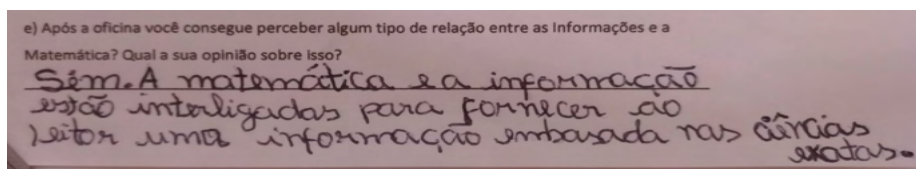 e) Após a oficina você consegue perceber algum tipo de relação entre as Informações e a
Matemática? Qual a sua opinião sobre isso?
Sim. A matemática e a informação
estão interligadas para fornecer ao
leitor uma informação embasada nas ciências
exatas.